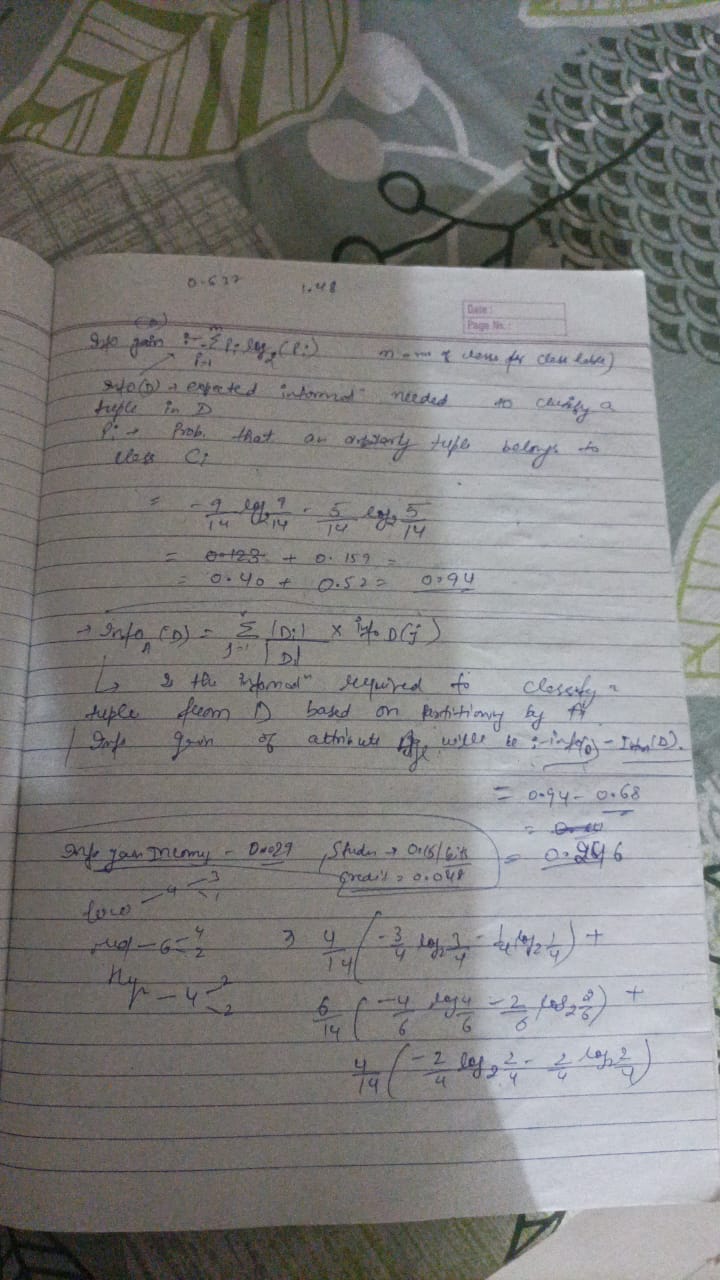 0.637 1.48
Date :
Page No. :
(D)
Info gain :- -Σ Pi log2 (Pi) m → no of classes for class label)
i=1
Info(D) → expected informatⁿ needed to classify a
tuple in D
Pi → Prob. that an arbitrary tuple belongs to
class Ci
= -9/14 log2 9/14 - 5/14 log2 5/14
= 0.123 + 0.159 =
= 0.40 + 0.52 = 0.94
→ Info A (D) = Σ j=1 |Dj| / |D| × info D(j)
↳ Is the informatⁿ required to classify a
tuple from D based on partitioning by A
Info gain of attribute age will be :- info(D) - Info(D).
= 0.94 - 0.68
=
= 0.246
Info gain Income - 0.029 Studen → 0.151 bits
credit = 0.048
low - 4 < 3 1
med - 6 < 4 2
2 4/14 ( -3/4 log2 3/4 - 1/4 log2 1/4 ) +
- 4 < 2 2
6/14 ( -4/6 log 4/6 - 2/6 log2 2/6 ) +
4/14 ( -2/4 log2 2/4 - 2/4 log2 2/4 )